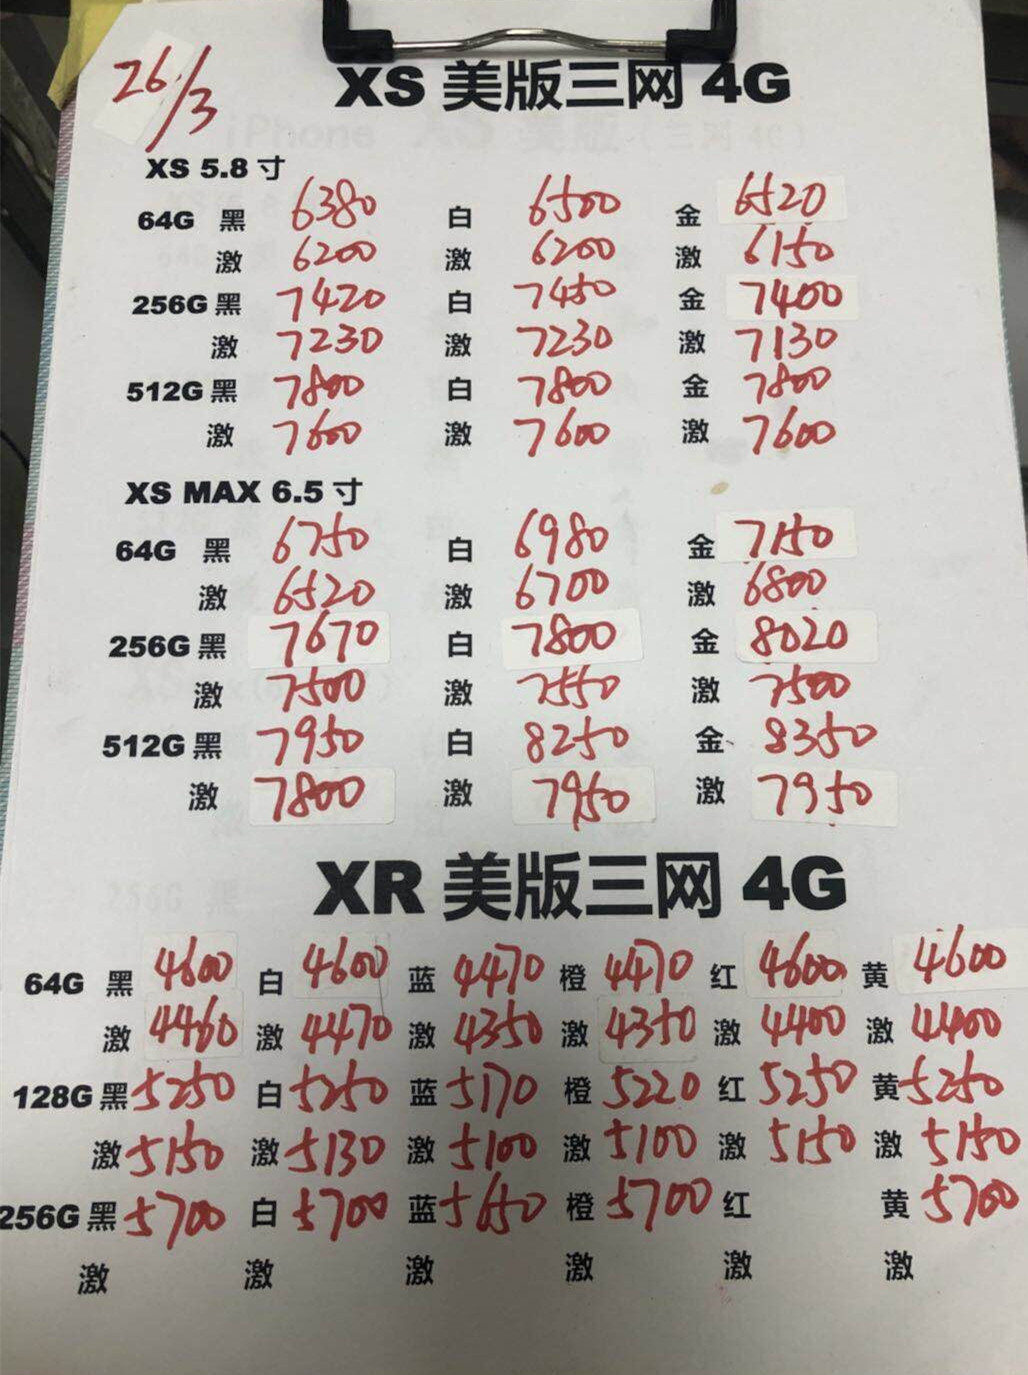 26/3
XS 美版三网 4G
XS 5.8 寸
64G 黑 6380 白 6500 金 6520
激 6200 激 6200 激 6150
256G 黑 7420 白 7450 金 7400
激 7230 激 7230 激 7130
512G 黑 7800 白 7800 金 7800
激 7600 激 7600 激 7600
XS MAX 6.5 寸
64G 黑 6750 白 6980 金 7150
激 6520 激 6700 激 6800
256G 黑 7670 白 7800 金 8020
激 7500 激 7550 激 7500
512G 黑 7950 白 8250 金 8350
激 7800 激 7950 激 7950
XR 美版三网 4G
64G 黑 4600 白 4600 蓝 4470 橙 4470 红 4600 黄 4600
激 4460 激 4470 激 4350 激 4350 激 4400 激 4400
128G 黑 5250 白 5250 蓝 5170 橙 5220 红 5250 黄 5250
激 5150 激 5130 激 5100 激 5100 激 5150 激 5150
256G 黑 5700 白 5700 蓝 5650 橙 5700 红 黄 5700
激 激 激 激 激 激